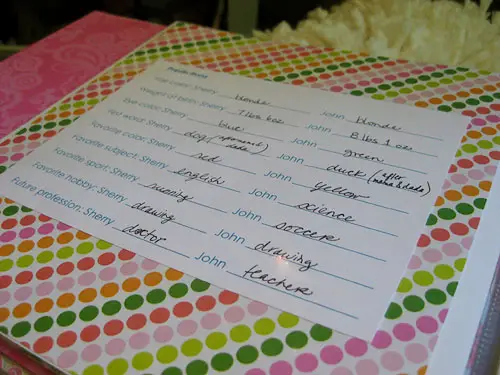 Hair color: Sherry blonde John blonde
Weight at birth: Sherry 7 lbs 6oz John 8 lbs 1 oz
Eye color: Sherry blue John green
First word: Sherry dog John duck (after mama & dada)
Favorite color: Sherry red John yellow
Favorite subject: Sherry english John science
Favorite sport: Sherry running John soccer
Favorite hobby: Sherry drawing John drawing
Future profession: Sherry doctor John teacher